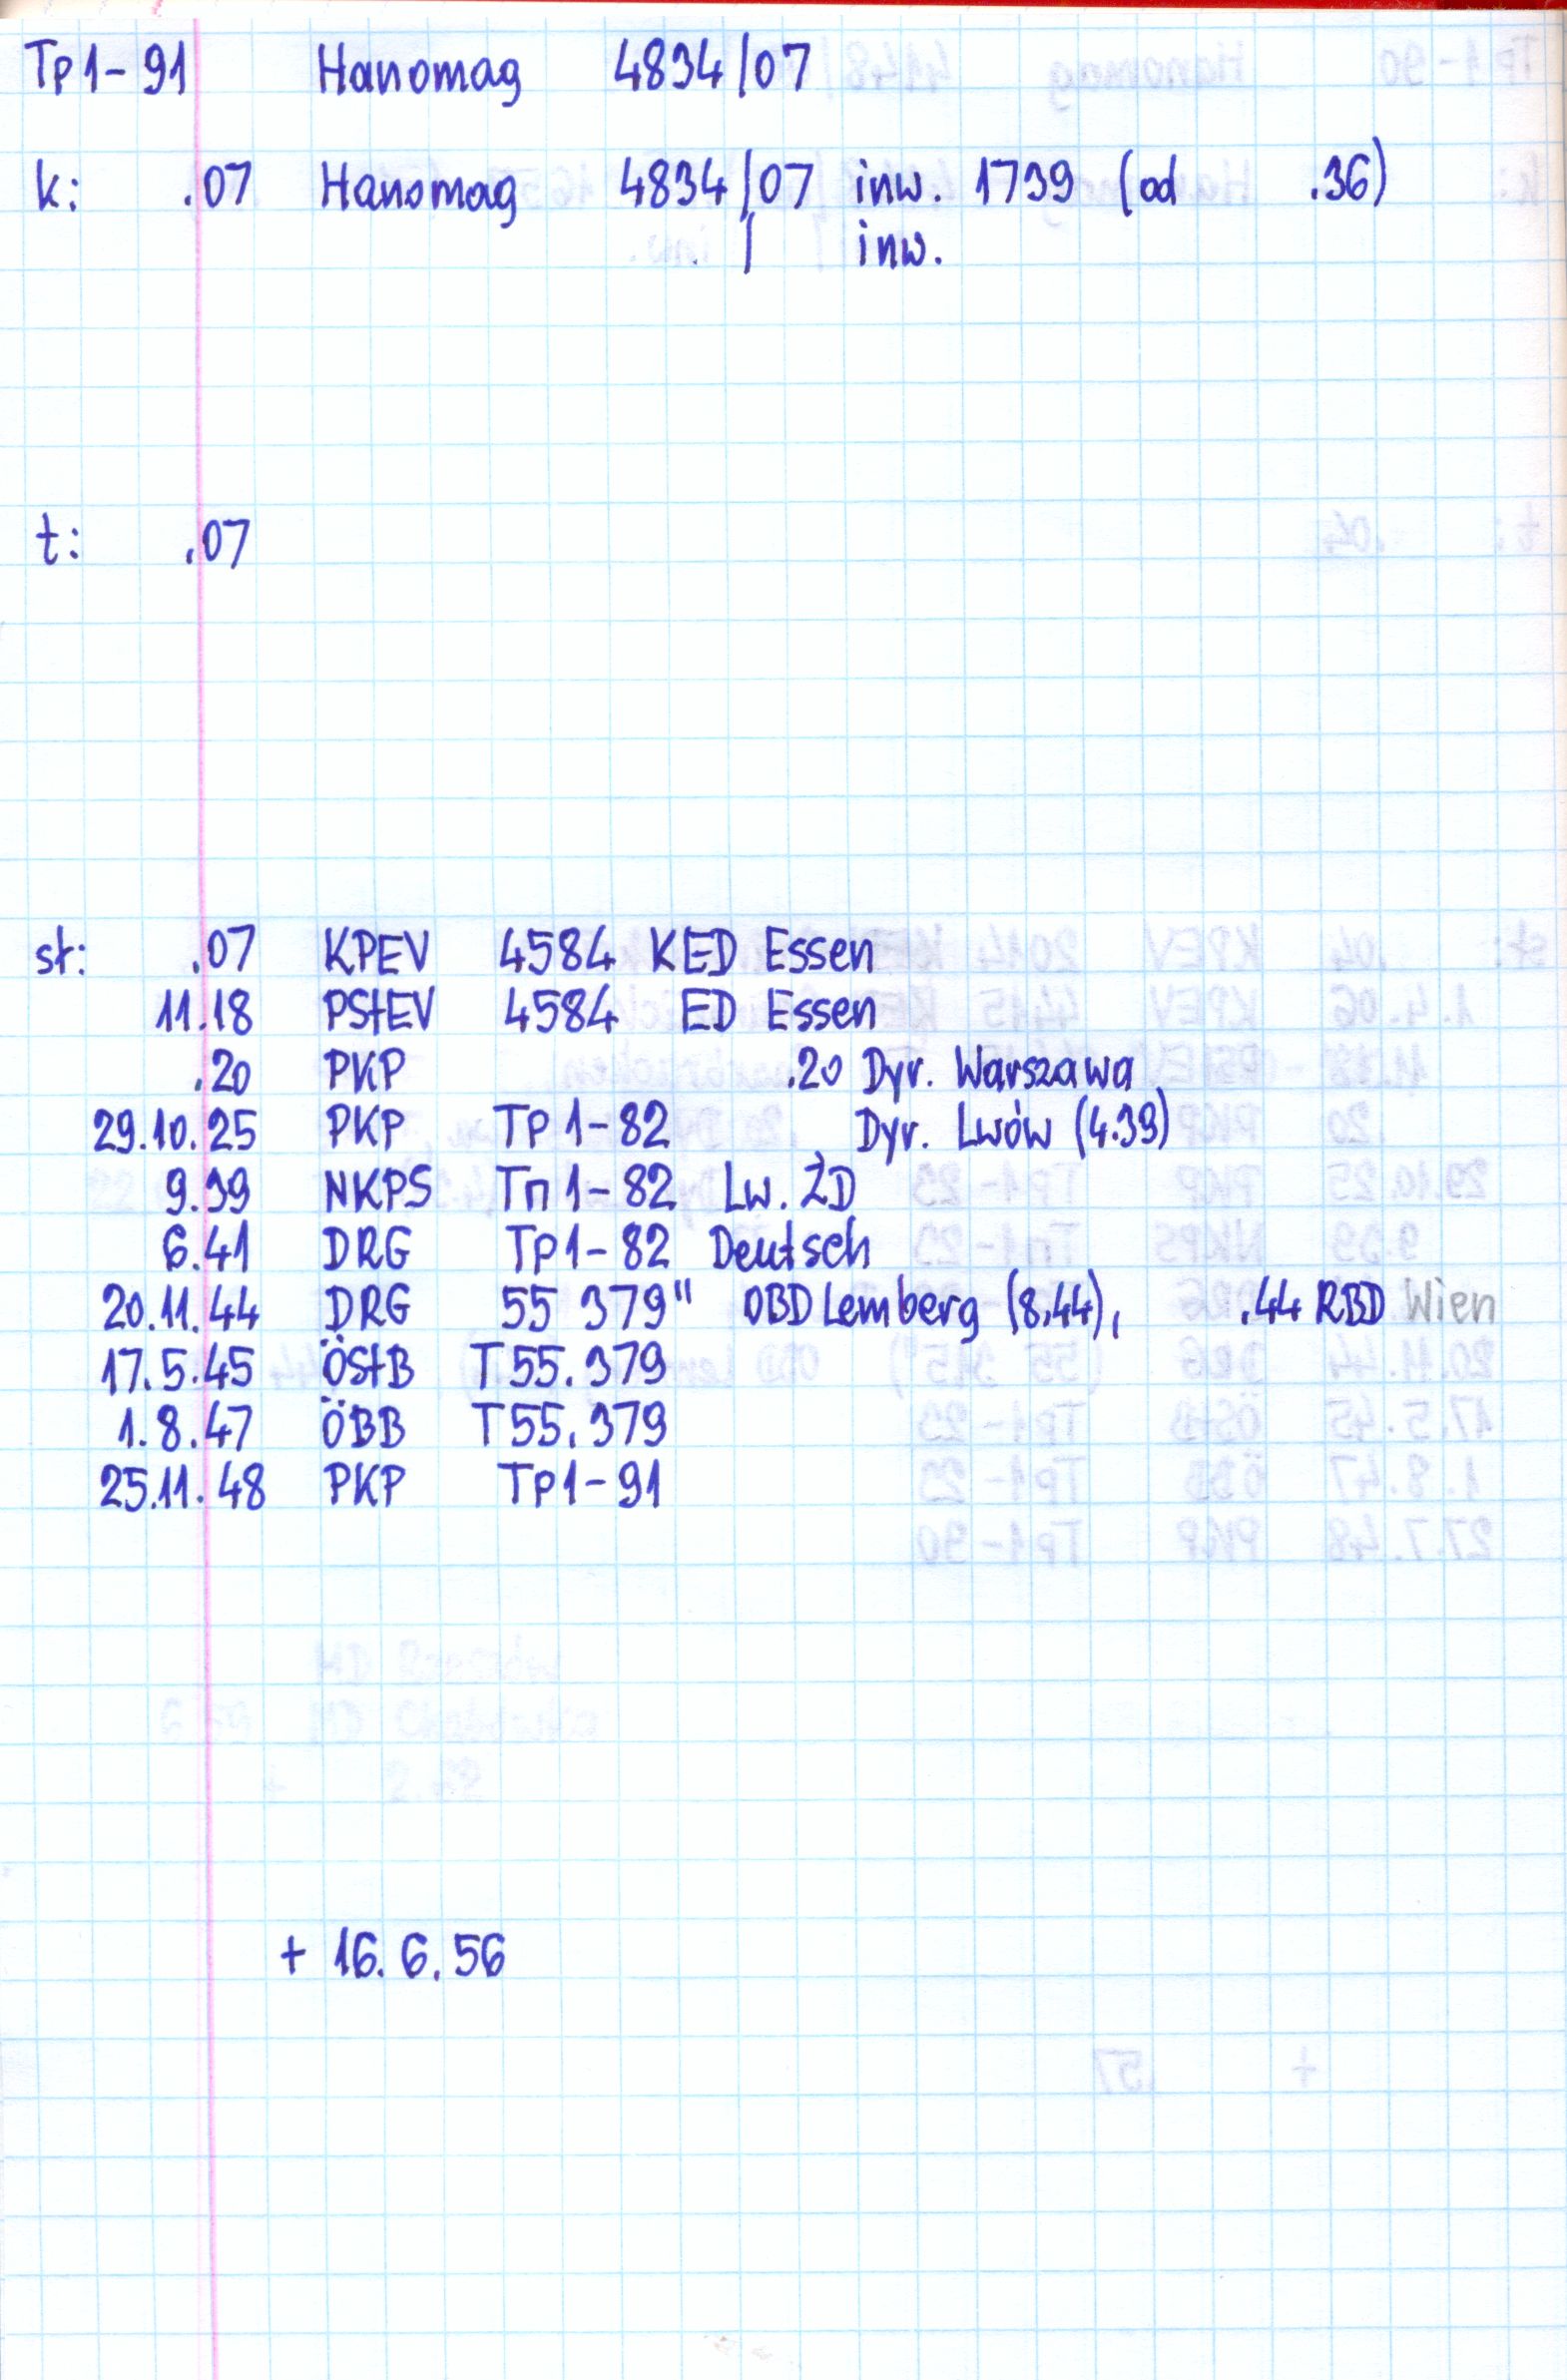 Tp1-91 Hanomag 4834/07
k: .07 Hanomag 4834/07 inw. 1739 (od .36)
/ inw.
t: .07
st: .07 KPEV 4584 KED Essen
11.18 PStEV 4584 ED Essen
.20 PKP .20 Dyr. Warszawa
29.10.25 PKP Tp1-82 Dyr. Lwów (4.39)
9.39 NKPS Тп1-82 Lw. ŻD
6.41 DRG Tp1-82 Deutsch
20.11.44 DRG 55 379" OBD Lemberg (8.44), .44 RBD Wien
17.5.45 ÖStB T55.379
1.8.47 ÖBB T55.379
25.11.48 PKP Tp1-91
+ 16.6.56